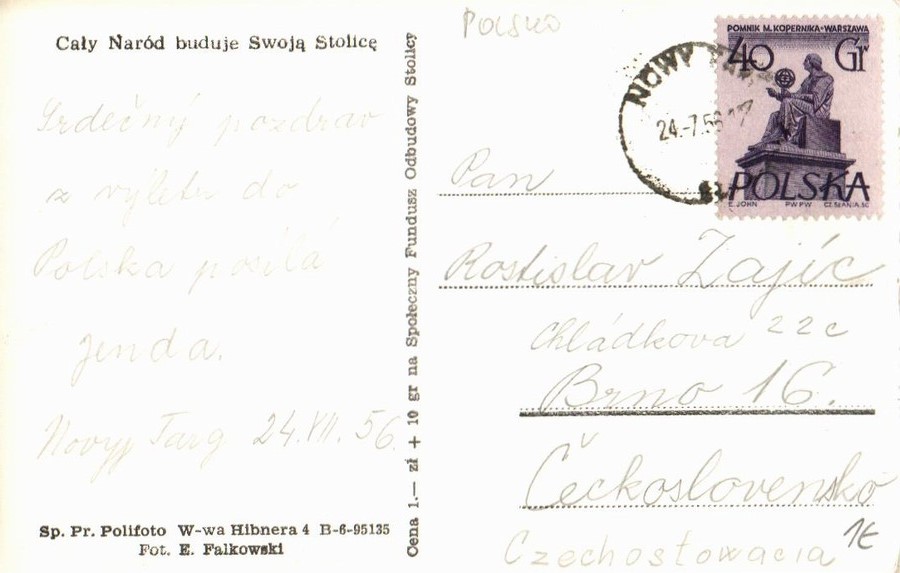 Cały Naród buduje Swoją Stolicę
Srdečný pozdrav
z výletu do
Polska posílá
Jenda.
Nowyj Targ 24.VII. 56.
Sp. Pr. Polifoto W-wa Hibnera 4 B-6-95135
Fot. E. Falkowski
Cena 1.— zł + 10 gr na Społeczny Fundusz Odbudowy Stolicy
Polsko
NOWY TAR
24.-7.56.17
POMNIK M. KOPERNIKA-WARSZAWA
40 Gr
POLSKA
E. JOHN PWPW CZ. SŁANIA. SC
Pan
Rostislav Zajíc
Chládkova 22c
Brno 16.
Čeckoslovensko
Czechosłowacia
1€